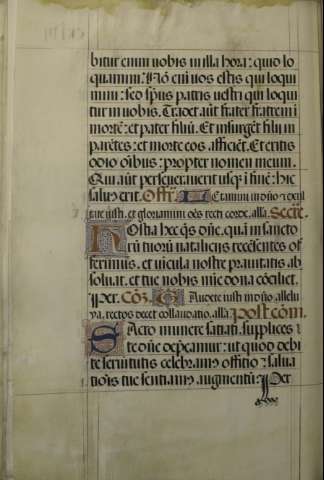 bitur enim uobis in illa hora: quio lo
quamini: Nõ eni uos estis qui loqui
mini: seo sp̃us patris uestri qui loqui
tur in uobis. Traoet aũt frater fratrem i
mortẽ: et pater filiũ. Et insurgẽt filij in
parẽtes: et morte eos afficiẽt. Et eritis
odio oĩbus: propter nomen meum.
Qui aũt perseuerauerit usq̃ i finẽ: hic
saluus erit. Offr̃.
Letamini in dño et exul
tate iusti, et gloriamini oẽs recti corde, alla. Secrẽ.
Hostia hec q̃s dñe, quã in sancto
rũ tuorũ natalicijs recẽsentes of
ferimus, et uicula nostre prauitatis ab
soluat, et tue nobis mie dona cõciliet.
Per. Cõ. Gaudete iusti in dño, allelu
ya, rectos decet collaudatio, alla. Post com.
Sacro munere satiati, supplices
te dñe depcamur: ut quod debi
te seruitutis celebramus officio: salua
tiõis tue sentiamus augmentũ. Per